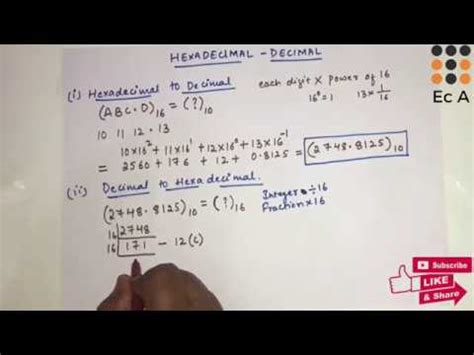 HEXADECIMAL - DECIMAL
(i) Hexadecimal to Decimal
each digit × power of 16
(ABC.D)₁₆ = (?)₁₀
16⁰ = 1 13 × 1/16
10 11 12 . 13
10×16² + 11×16¹ + 12×16⁰ + 13×16⁻¹
= 2560 + 176 + 12 + 0.8125 = (2748.8125)₁₀
(ii) Decimal to Hexadecimal.
(2748.8125)₁₀ = (?)₁₆
Integer ÷ 16
Fraction × 16
16 2748
16 171 - 12(C)
Ec A
SUBSCRIBE
LIKE
& Share